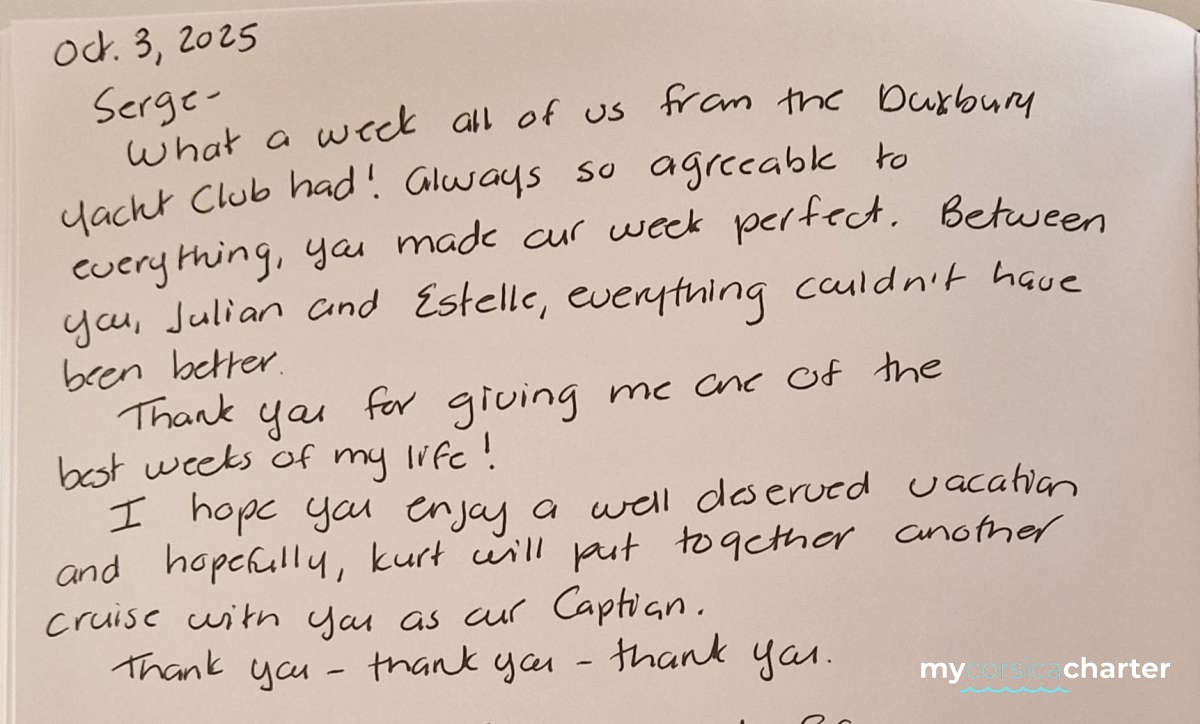 Oct. 3, 2025
Serge-
What a week all of us from the Duxbury
Yacht Club had! Always so agreeable to
everything, you made our week perfect. Between
you, Julian and Estelle, everything couldn't have
been better.
Thank you for giving me one of the
best weeks of my life!
I hope you enjoy a well deserved vacation
and hopefully, Kurt will put together another
cruise with you as our Captian.
Thank you - thank you - thank you.
mycorsicacharter